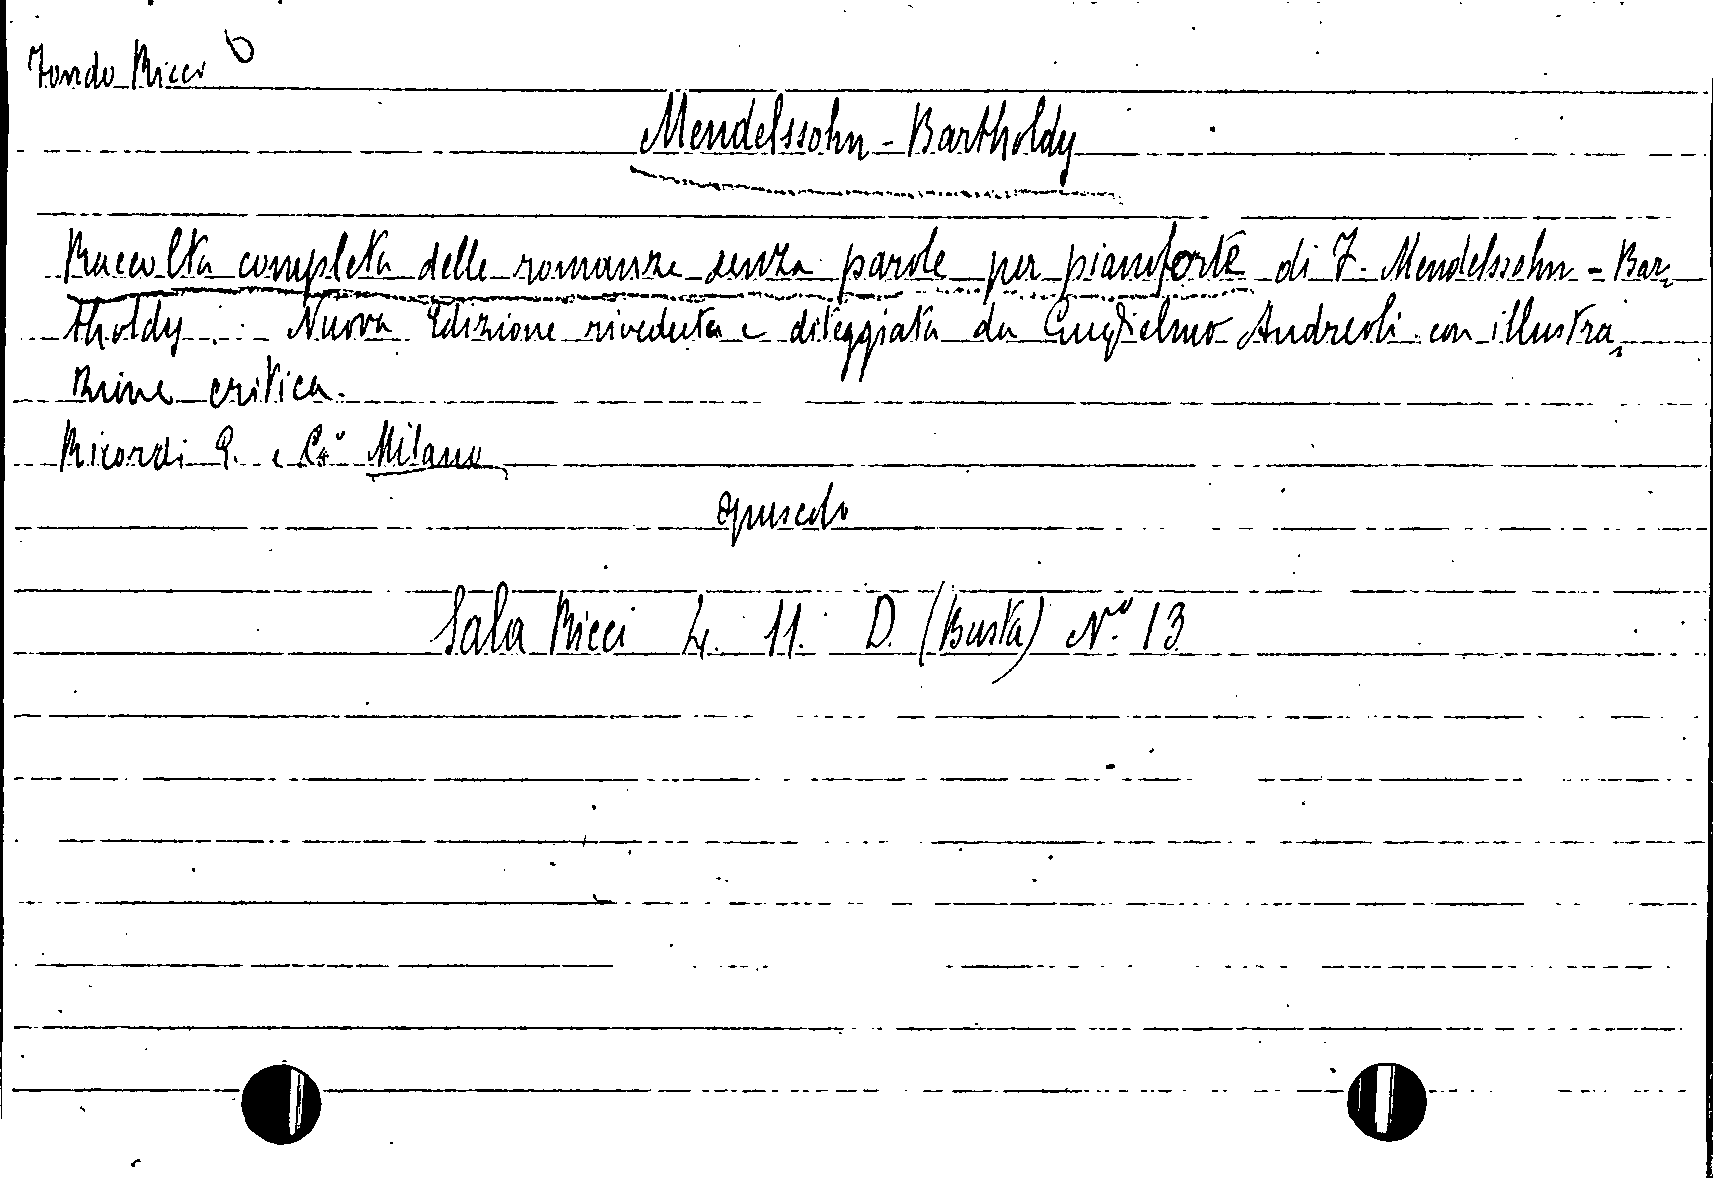 Fondo Ricci 6
Mendelssohn - Bartholdy
Raccolta completa delle romanze senza parole per pianoforte di F. Mendelssohn - Bar,
tholdy. Nuova Edizione riveduta e diteggiata da Guglielmo Andreoli con illustra,
zione critica.
Ricordi G. e Cº Milano
opuscolo
Sala Ricci 4. 11. D. (Busta) Nº 13